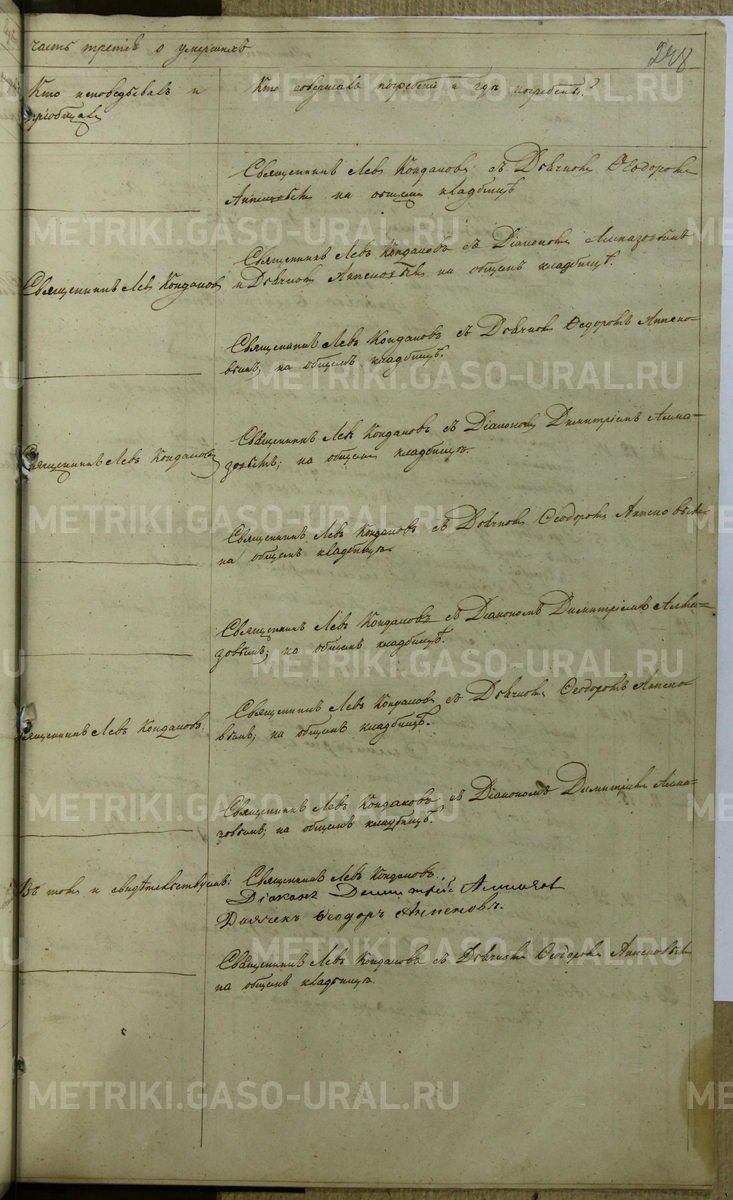 часть третія о умершихъ
Кто исповѣдывалъ и
пріобщалъ
Кто совершалъ погребеніе и гдѣ погребены?
Священникъ Левъ Кондаковъ съ Дьячкомъ Ѳеодоромъ
на общемъ кладбищѣ
Священникъ Левъ Кондаковъ
Священникъ Левъ Кондаковъ съ Діакономъ Алмазовымъ
и Дьячкомъ на общемъ кладбищѣ.
Священникъ Левъ Кондаковъ съ Дьячкомъ Ѳедоромъ
на общемъ кладбищѣ.
Священникъ Левъ Кондаковъ
Священникъ Левъ Кондаковъ съ Діакономъ Димитріемъ Алма-
зовымъ; на общемъ кладбищѣ.
Священникъ Левъ Кондаковъ съ Дьячкомъ Ѳеодоромъ
на общемъ кладбищѣ
Священникъ Левъ Кондаковъ съ Діакономъ Димитріемъ Алма-
зовымъ; на общемъ кладбищѣ.
Священникъ Левъ Кондаковъ
Священникъ Левъ Кондаковъ съ Дьячкомъ Ѳеодоромъ
на общемъ кладбищѣ.
Священникъ Левъ Кондаковъ съ Діакономъ Димитріемъ Алма-
зовымъ; на общемъ кладбищѣ.
Въ томъ и свидѣтельствуемъ: Священникъ Левъ Кондаковъ.
Діаконъ Димитрій Алмазов
Дьячекъ Ѳеодоръ
Священникъ Левъ Кондаковъ съ Дьячкомъ Ѳеодоромъ
на общемъ кладбищѣ
METRIKI.GASO-URAL.RU